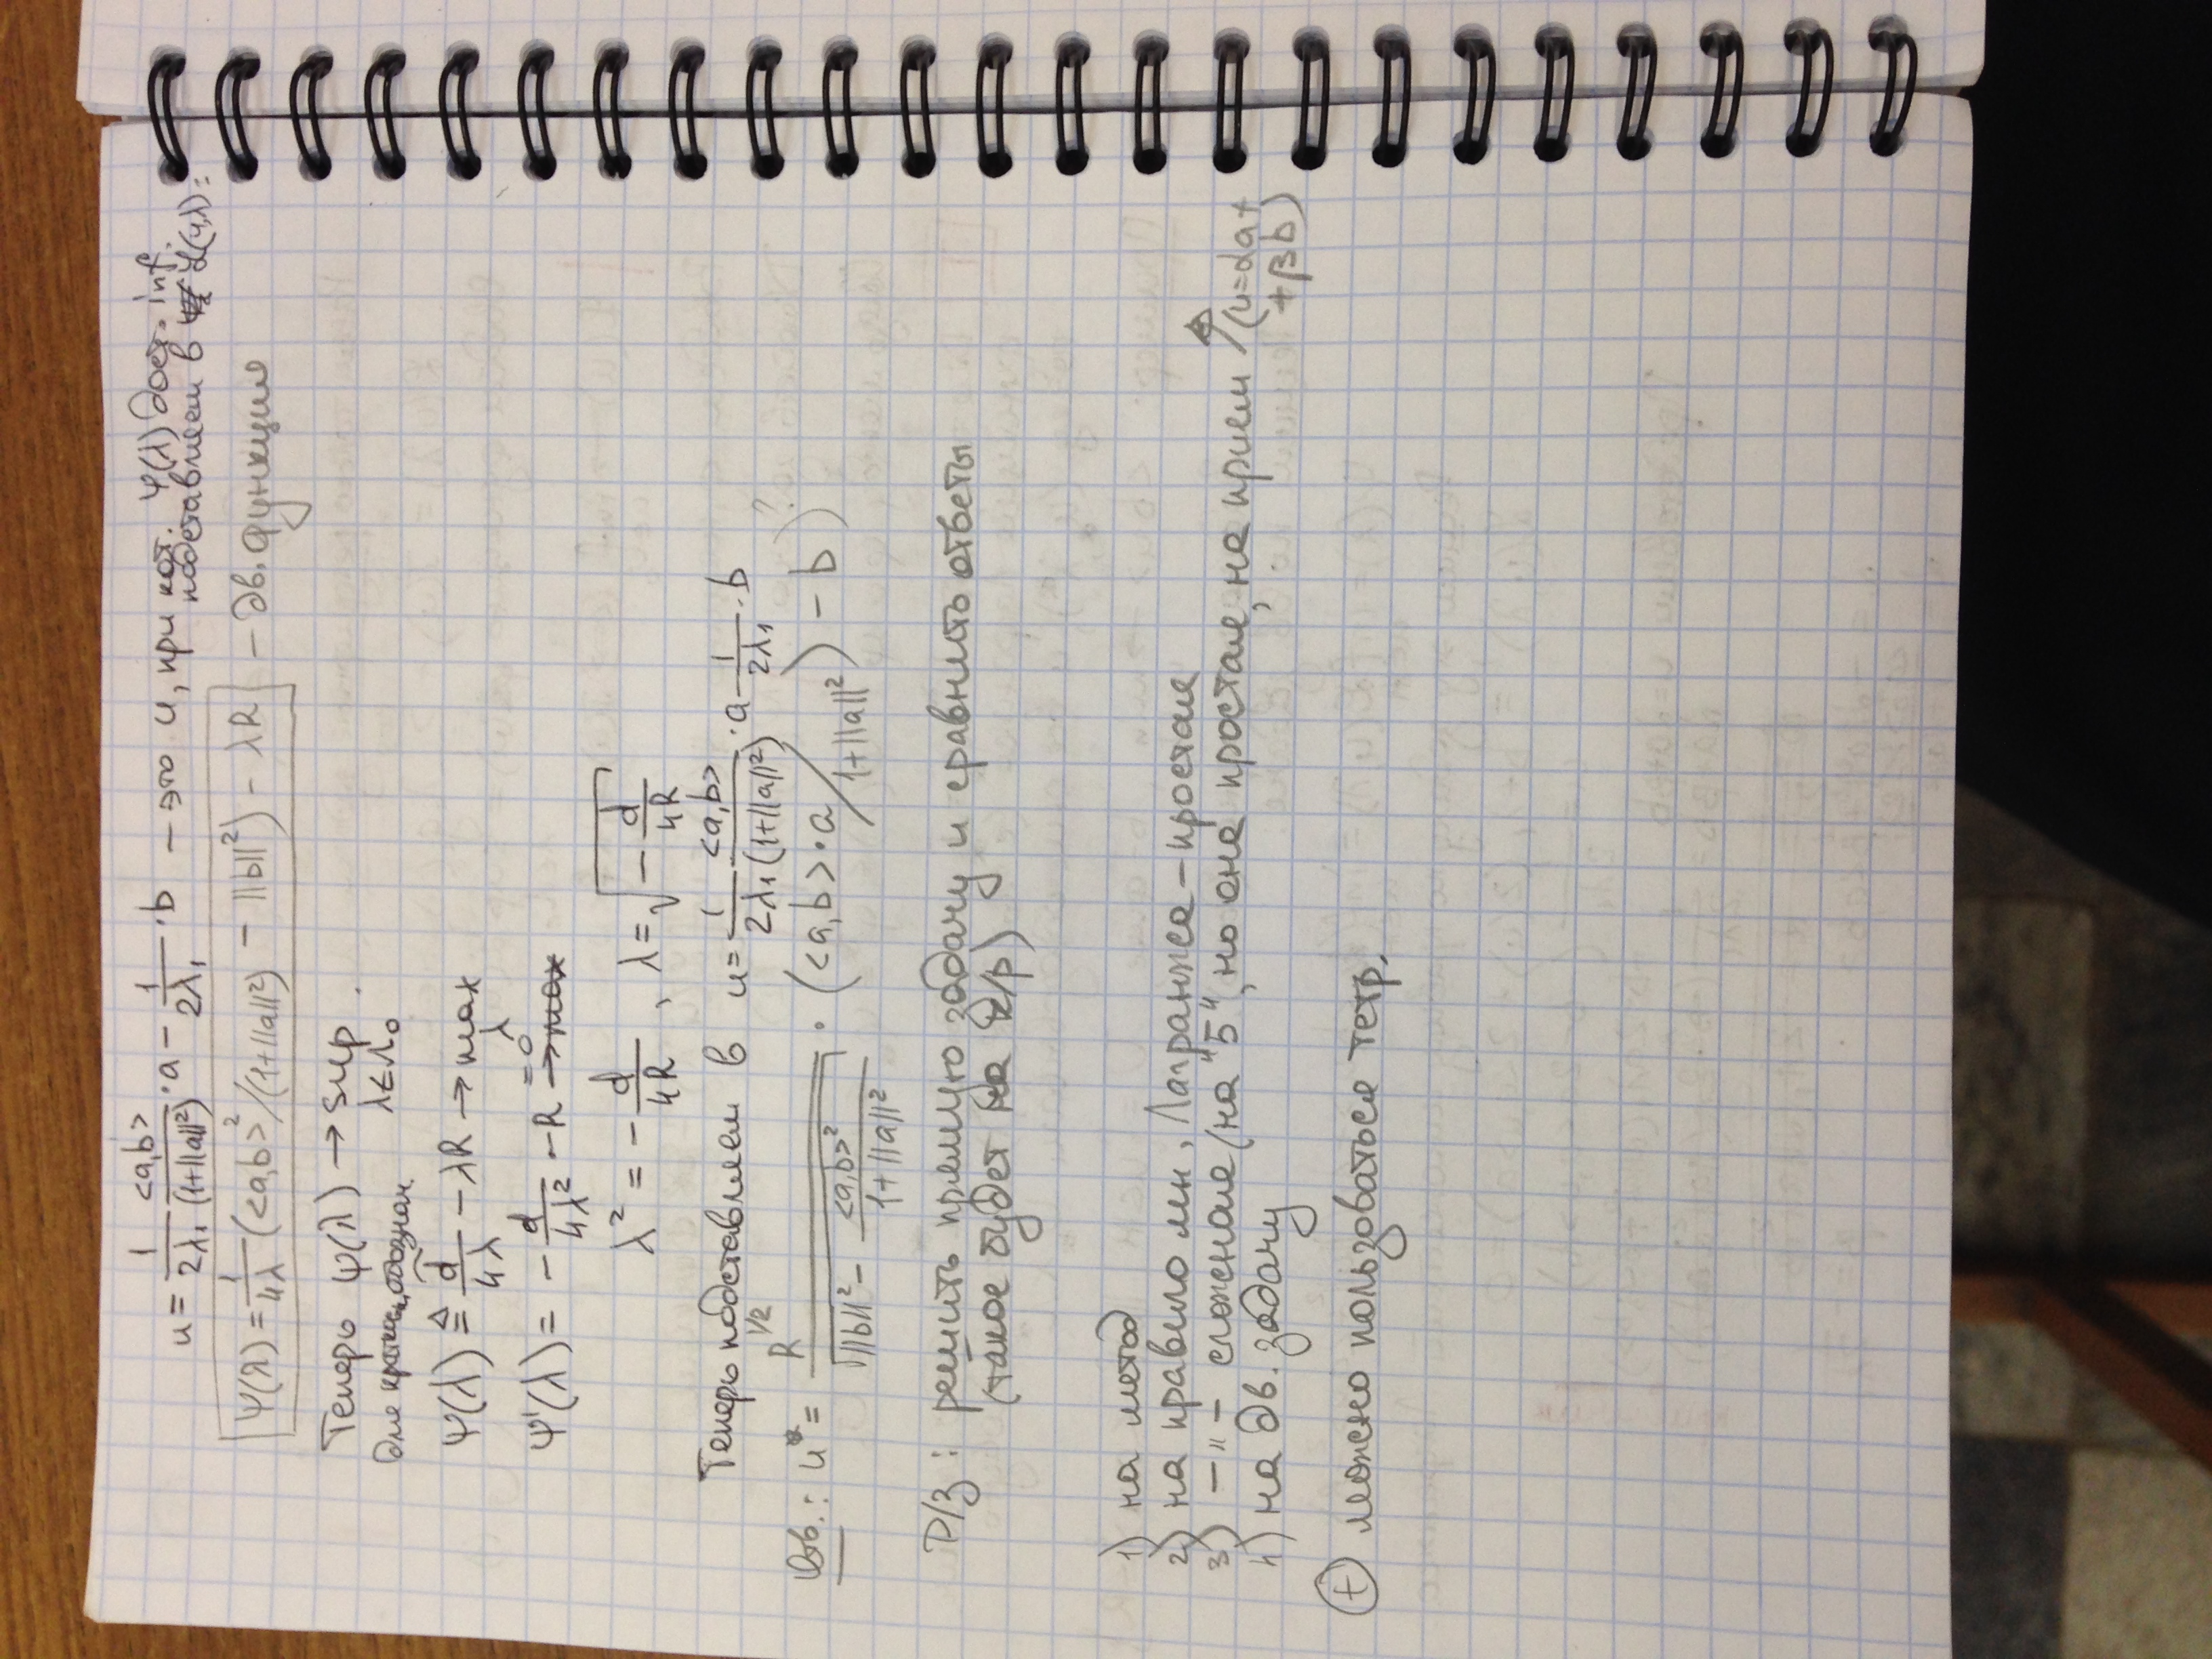 u = 1/2λ₁ <a,b>/(1+||a||²) · a − 1/2λ₁ · b – это u, при кот. ψ(λ) дост. inf.
подставляем в L(u,λ):
ψ(λ) = 1/4λ (<a,b>²/(1+||a||²) − ||b||²) − λR – дв. функция
Теперь ψ(λ) → sup λ∈Λ₀.
для кратк. обознач.
ψ(λ) ≜ d/4λ − λR → max λ
ψ'(λ) = − d/4λ² − R = 0 → max
λ² = − d/4R , λ = √(− d/4R)
Теперь подставляем в u = 1/2λ₁ <a,b>/(1+||a||²) · a − 1/2λ₁ · b
Отв.: u* = R^1/2 / √(||b||² − <a,b>²/(1+||a||²)) · (<a,b>·a/(1+||a||²) − b) ?
Д/з: решить прямую задачу и сравнить ответы
(такое будет на к/р)
1) на метод
2) на правило мн. Лагранжа – простая
3) –"– сложная (на "5", но она простая, на прием ↑ (u=αa+
+βb)
4) на дв. задачу
(+) можно пользоваться тетр.